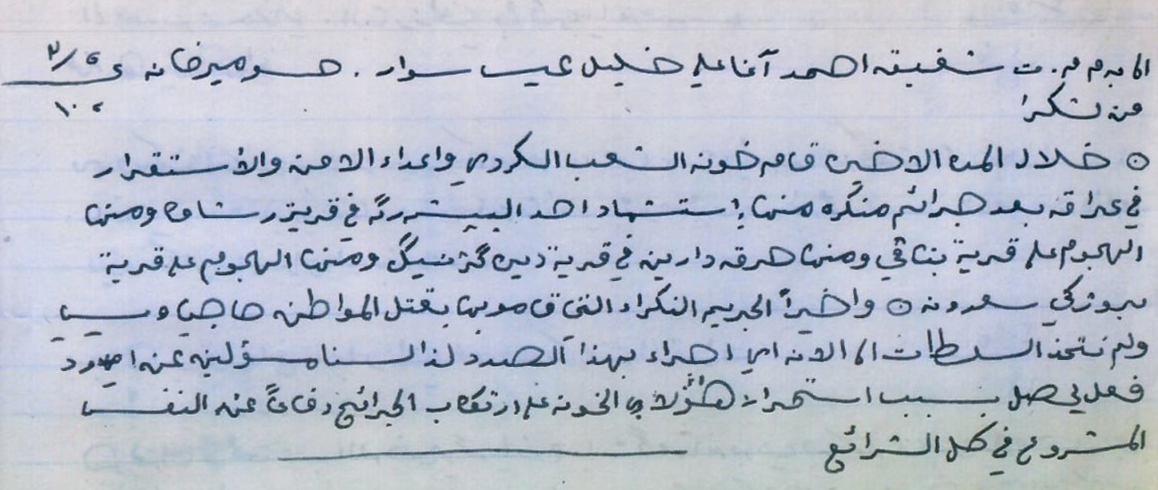 الى م م . ت شفيقه احمد آغا علي خليل عيسى سوار . حسو ميرخانه ٢/٥
١٠٠
من تشكرا
○ خلال المده الاخيره قام خونه الشعب الكردي واعداء الامن والأستقرار
في عراقه بعد جرائم منكره منها إستشهاد احد البيشمرگه في قرية رشافا ومنها
الهجوم على قرية بناڤي ومنها حرقه دارين في قرية ديره گژنيگ ومنها الهجوم على قرية
سعدونه ○ واخيراً الجريمه النكراء التي قاموا بها بقتل المواطن حاجي
ولم تتخذ السلطات الى الان اي اجراء بهذا الصدد لذا لسنا مسؤلين عن اي
فعل يحصل بسبب استمرار هؤلاء الخونه على ارتكاب الجرائم دفاعاً عن النفس
المشروع في كل الشرائع